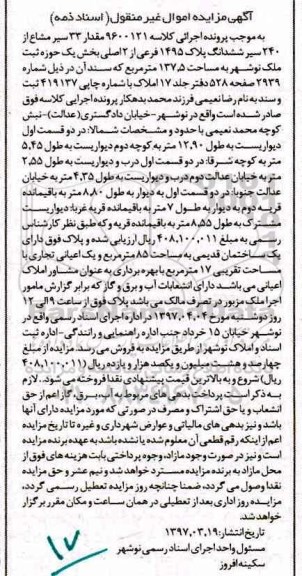 آگهی مزایده اموال غیر منقول ( اسناد ذمه )
به موجب پرونده اجرائی کلاسه ۹۶۰۰۱۲۱ مقدار ۳۳ سیر مشاع از
۲۴۰ سیر ششدانگ پلاک ۱۴۹۵ فرعی از ۲ اصلی بخش یک حوزه ثبت
ملک نوشهر به مساحت ۱۳۷,۵ مترمربع که سند آن در ذیل شماره
۲۹۳۹ صفحه ۵۲۸ دفتر جلد ۱۷ املاک با شماره چاپی ۴۱۹۱۳۷ ثبت
و سند به نام رضا نعیمی فرزند محمد بدهکار پرونده اجرایی کلاسه فوق
صادر شده است واقع در نوشهر - خیابان دادگستری (عدالت) - نبش
کوچه محمد نعیمی با حدود و مشخصات شمالا : در دو قسمت اول
دیواریست به طول ۱۲,۹۰ متر به کوچه دوم دیواریست به طول ۵,۴۵
متر به کوچه شرقا: در دو قسمت اول درب و دیواریست به طول ۲,۵۵
متر به خیابان عدالت دوم درب و دیواریست به طول ۴,۳۵ متر به خیابان
عدالت جنوبا: در دو قسمت اول به دیوار به طول ۸,۸۰ متر به باقیمانده
قریه دوم به دیوار به طول ۷ متر به باقیمانده قریه غربا: دیواریست
مشترک به طول ۸,۵۵ متر به باقیمانده قریه و که طبق نظر کارشناس
رسمی به مبلغ ۴۰۸,۱۰۰,۰۱۱ ریال ارزیابی شده و پلاک فوق دارای
یک ساختمان قدیمی به مساحت ۸۵ مترمربع و یک اعیانی تجاری با
مساحت تقریبی ۱۷ مترمربع با بهره برداری به عنوان مشاور املاک
اعیانی می باشد دارای انشعابات آب و برق و گاز که برابر گزارش مامور
اجرا ملک مزبور در تصرف مالک می باشد پلاک فوق از ساعت ۹ الی ۱۲
روز دوشنبه مورخ ۱۳۹۷,۰۴,۰۴ در اداره اجرای اسناد رسمی واقع در
نوشهر خیابان ۱۵ خرداد جنب اداره راهنمایی و رانندگی - اداره ثبت
اسناد و املاک نوشهر از طریق مزایده به فروش می رسد. مزایده از مبلغ
چهارصد و هشت میلیون و یکصد هزار و یازده ریال (۴۰۸,۱۰۰,۰۱۱
ریال) شروع و به بالاترین قیمت پیشنهادی نقدا فروخته می شود. لازم
به ذکر است پرداخت بدهی های مربوط به آب، برق، گاز اعم از حق
انشعاب و یا حق اشتراک و مصرف در صورتی که مورد مزایده دارای آنها
باشد و نیز بدهی های مالیاتی و عوارض شهرداری و غیره تا تاریخ مزایده
اعم از اینکه رقم قطعی آن معلوم شده یا نشده باشد به عهده برنده مزایده
است و نیز در صورت وجود مازاد، وجوه پرداختی بابت هزینه های فوق از
محل مازاد به برنده مزایده مسترد خواهد شد و نیم عشر و حق مزایده
نقدا وصول می گردد، ضمنا چنانچه روز مزایده تعطیل رسمی گردد،
مزایده روز اداری بعد از تعطیلی در همان ساعت و مکان مقرر برگزار
خواهد شد.
تاریخ انتشار: ۱۳۹۷,۰۳,۱۹
مسئول واحد اجرای اسناد رسمی نوشهر
سکینه افروز
۱۷